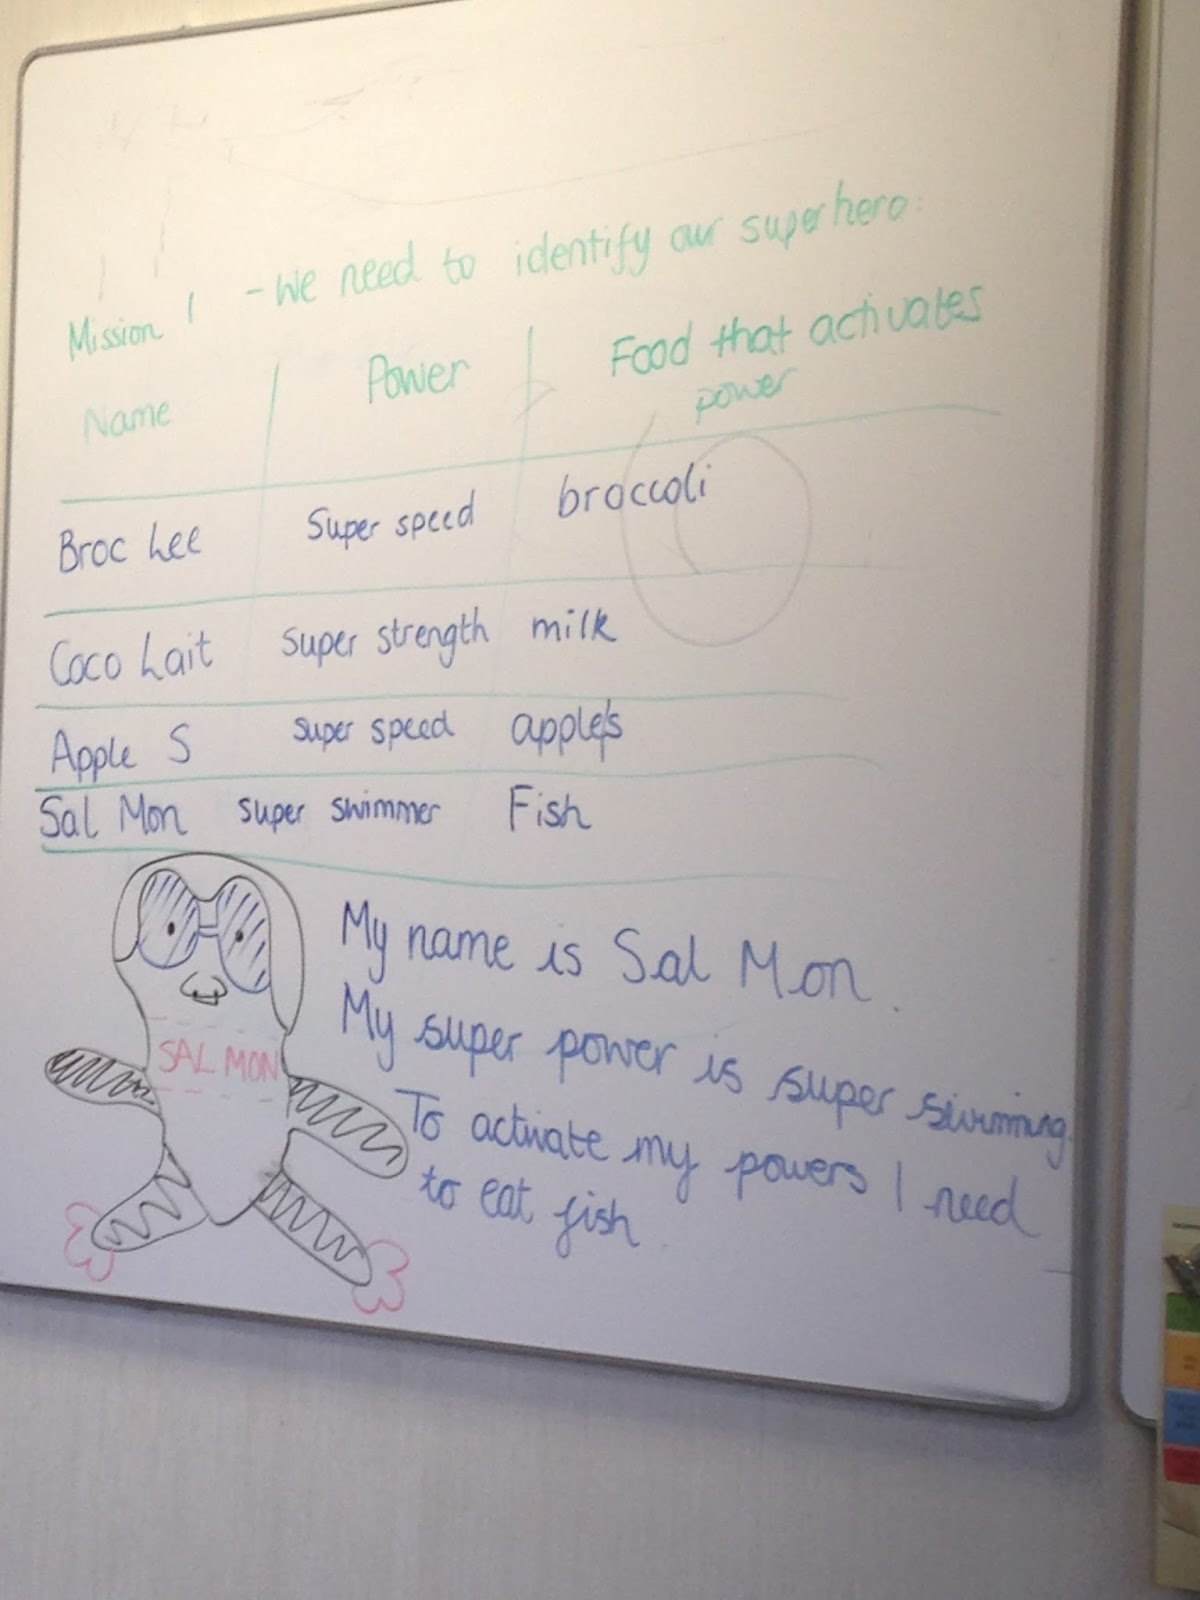 Mission 1 - We need to identify our superhero.
Name Power Food that activates
power
Broc Lee Super speed broccoli
Coco Lait super strength milk
Apple S super speed apples
Sal Mon super swimmer Fish
My name is Sal Mon.
My super power is super swimming.
To activate my powers I need
to eat fish.
SAL MON